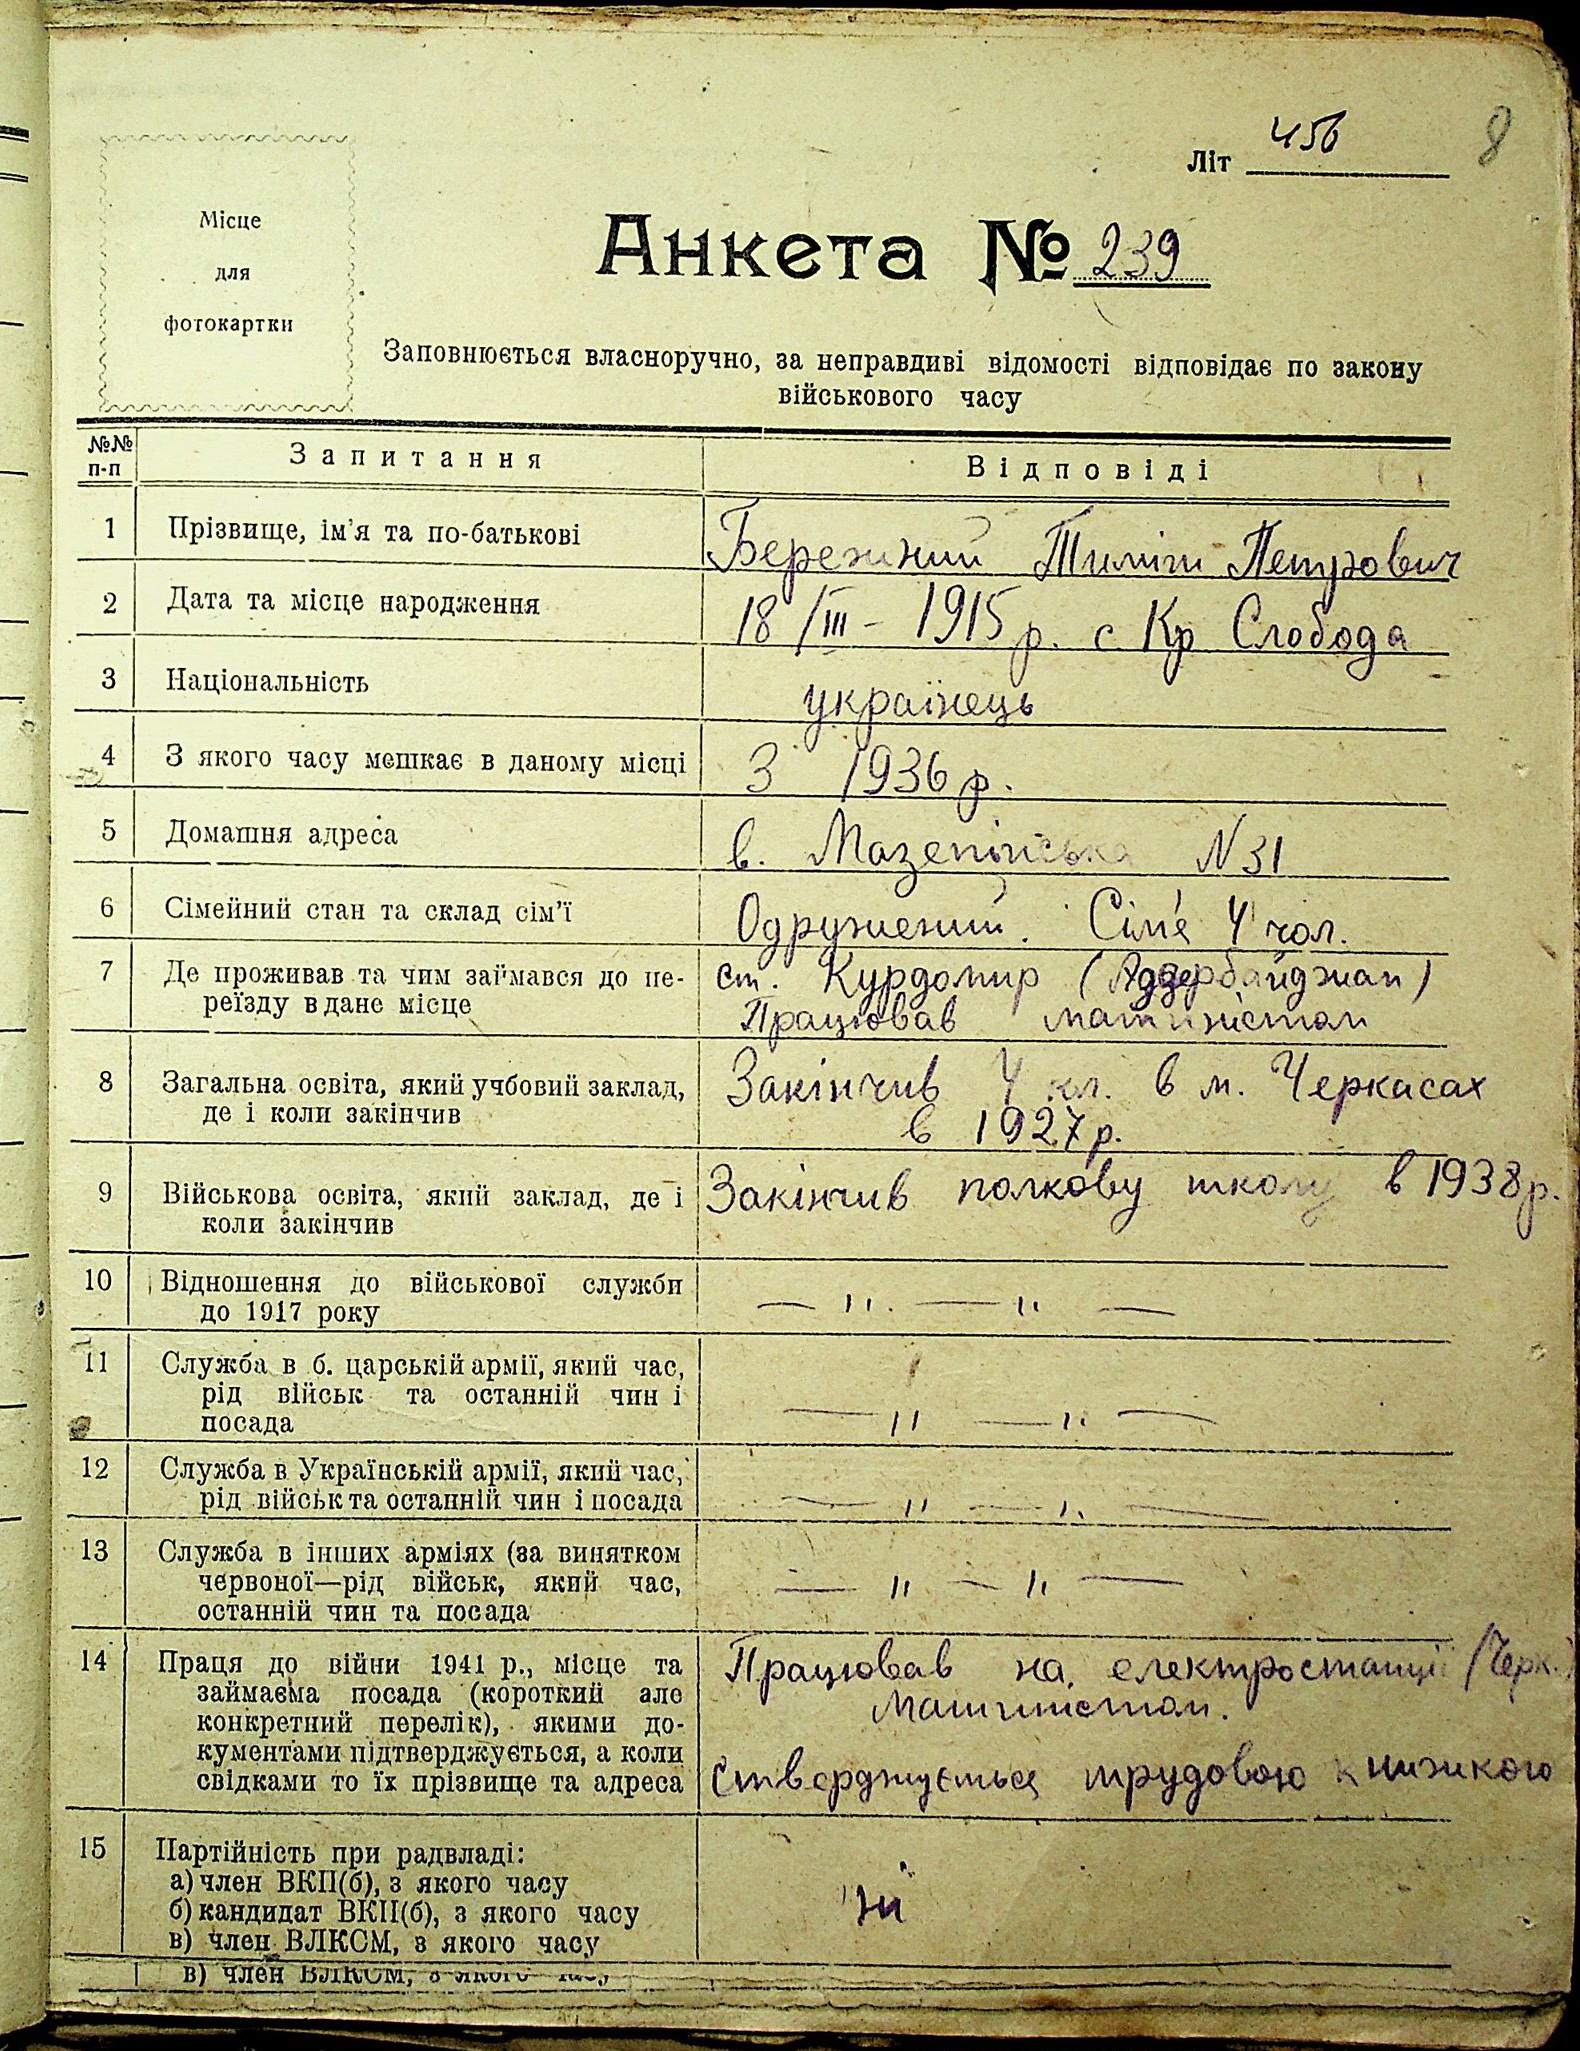 8
Літ 456
Місце
для
фотокартки
Анкета № 239
Заповнюється власноручно, за неправдиві відомості відповідає по закону
військового часу
№№
п-п
Запитання
Відповіді
1 Прізвище, ім'я та по-батькові
Бережний Тиміш Петрович
2 Дата та місце народження
18/III - 1915 р. с Кр Слобода
3 Національність
українець
4 З якого часу мешкає в даному місці
З 1936 р.
5 Домашня адреса
в. Мазепінська N 31
6 Сімейний стан та склад сім'ї
Одружений. Сім'є 4 чол.
7 Де проживав та чим займався до пе-
реїзду в дане місце
ст. Курдомир (Адзербайджан)
Працював машиністом
8 Загальна освіта, який учбовий заклад,
де і коли закінчив
Закінчив 4 кл. в м. Черкасах
в 1927 р.
9 Військова освіта, який заклад, де і
коли закінчив
Закінчив полкову школу в 1938 р.
10 Відношення до військової служби
до 1917 року
— " — " —
11 Служба в б. царській армії, який час,
рід військ та останній чин і
посада
— " — " —
12 Служба в Українській армії, який час,
рід військ та останній чин і посада
— " — " —
13 Служба в інших арміях (за винятком
червоної—рід військ, який час,
останній чин та посада
— " — " —
14 Праця до війни 1941 р., місце та
займаєма посада (короткий але
конкретний перелік), якими до-
кументами підтверджується, а коли
свідками то їх прізвище та адреса
Працював на електростанції (Черк.)
Машиністом.
Стверджується трудовою книжкою
15 Партійність при радвладі:
а) член ВКП(б), з якого часу
б) кандидат ВКП(б), з якого часу
в) член ВЛКСМ, з якого часу
ні
в) член ВЛКСМ, з якого часу